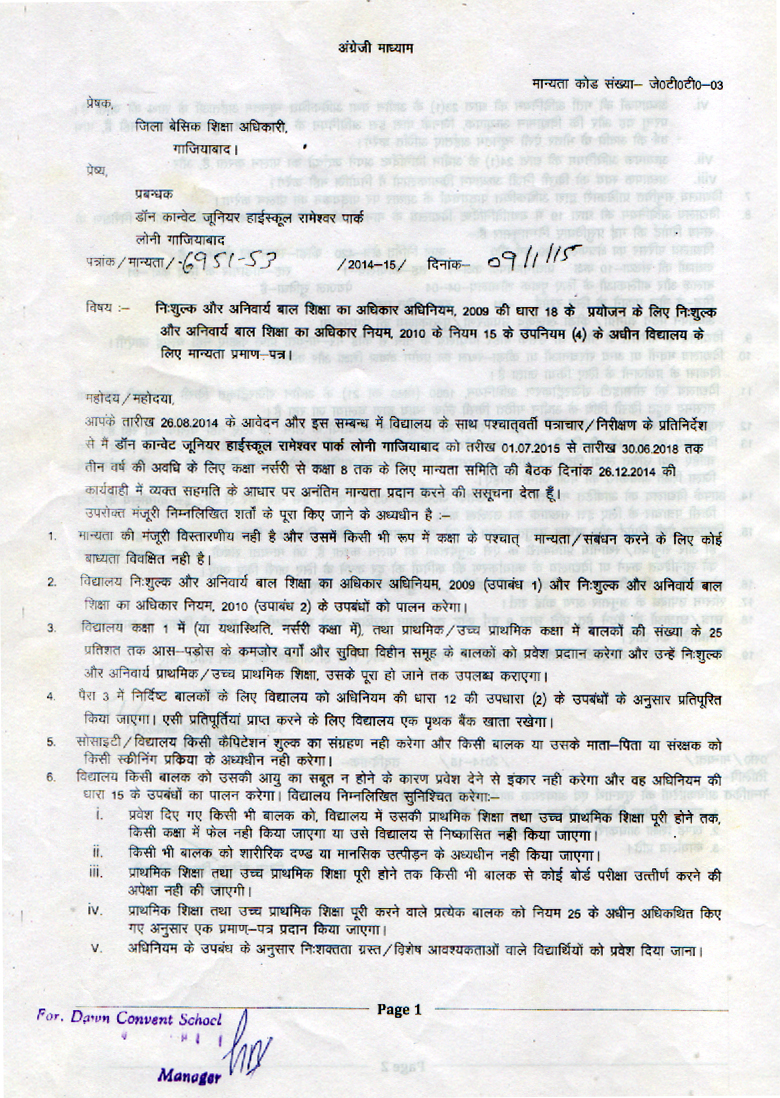 अंग्रेजी माध्यम
मान्यता कोड संख्या– जे0टी0टी0–03
प्रेषक,
जिला बेसिक शिक्षा अधिकारी,
गाजियाबाद।
प्रेष्य,
प्रबन्धक
डॉन कान्वेट जूनियर हाईस्कूल रामेश्वर पार्क
लोनी गाजियाबाद
पत्रांक/मान्यता/-6951-53 /2014–15/ दिनांक– 09/1/15
विषय :– निःशुल्क और अनिवार्य बाल शिक्षा का अधिकार अधिनियम, 2009 की धारा 18 के प्रयोजन के लिए निःशुल्क
और अनिवार्य बाल शिक्षा का अधिकार नियम, 2010 के नियम 15 के उपनियम (4) के अधीन विद्यालय के
लिए मान्यता प्रमाण–पत्र।
महोदय/महोदया,
आपके तारीख 26.08.2014 के आवेदन और इस सम्बन्ध में विद्यालय के साथ पश्चात्वर्ती पत्राचार/निरीक्षण के प्रतिनिर्देश
से मैं डॉन कान्वेट जूनियर हाईस्कूल रामेश्वर पार्क लोनी गाजियाबाद को तरीख 01.07.2015 से तारीख 30.06.2018 तक
तीन वर्ष की अवधि के लिए कक्षा नर्सरी से कक्षा 8 तक के लिए मान्यता समिति की बैठक दिनांक 26.12.2014 की
कार्यवाही में व्यक्त सहमति के आधार पर अनंतिम मान्यता प्रदान करने की ससूचना देता हूँ।
उपरोक्त मंजूरी निम्नलिखित शर्तो के पूरा किए जाने के अध्यधीन है :–
1. मान्यता की मंजूरी विस्तारणीय नही है और उसमें किसी भी रूप में कक्षा के पश्चात् मान्यता/संबंधन करने के लिए कोई
बाध्यता विवक्षित नही है।
2. विद्यालय निःशुल्क और अनिवार्य बाल शिक्षा का अधिकार अधिनियम, 2009 (उपाबंध 1) और निःशुल्क और अनिवार्य बाल
शिक्षा का अधिकार नियम, 2010 (उपाबंध 2) के उपबंधों को पालन करेगा।
3. विद्यालय कक्षा 1 में (या यथास्थिति, नर्सरी कक्षा में), तथा प्राथमिक/उच्च प्राथमिक कक्षा में बालकों की संख्या के 25
प्रतिशत तक आस–पडोस के कमजोर वर्गों और सुविधा विहीन समूह के बालकों को प्रवेश प्रदाान करेगा और उन्हें निःशुल्क
और अनिवार्य प्राथमिक/उच्च प्राथमिक शिक्षा, उसके पूरा हो जाने तक उपलब्ध कराएगा।
4. पैरा 3 में निर्दिष्ट बालकों के लिए विद्यालय को अधिनियम की धारा 12 की उपधारा (2) के उपबंधों के अनुसार प्रतिपूरित
किया जाएगा। एसी प्रतिपूर्तियां प्राप्त करने के लिए विद्यालय एक पृथक बैंक खाता रखेगा।
5. सोसाइटी/विद्यालय किसी कैपिटेशन शुल्क का संग्रहण नही करेगा और किसी बालक या उसके माता–पिता या संरक्षक को
किसी स्कीनिंग प्रकिया के अध्यधीन नही करेगा।
6. विद्यालय किसी बालक को उसकी आयु का सबूत न होने के कारण प्रवेश देने से इंकार नही करेगा और वह अधिनियम की
धारा 15 के उपबंधों का पालन करेगा। विद्यालय निम्नलिखित सुनिश्चित करेगाः–
i. प्रवेश दिए गए किसी भी बालक को, विद्यालय में उसकी प्राथमिक शिक्षा तथा उच्च प्राथमिक शिक्षा पूरी होने तक,
किसी कक्षा में फेल नही किया जाएगा या उसे विद्यालय से निष्कासित नही किया जाएगा।
ii. किसी भी बालक को शारीरिक दण्ड या मानसिक उत्पीड़न के अध्यधीन नही किया जाएगा।
iii. प्राथमिक शिक्षा तथा उच्च प्राथमिक शिक्षा पूरी होने तक किसी भी बालक से कोई बोर्ड परीक्षा उत्तीर्ण करने की
अपेक्षा नही की जाएगी।
iv. प्राथमिक शिक्षा तथा उच्च प्राथमिक शिक्षा पूरी करने वाले प्रत्येक बालक को नियम 25 के अधीन अधिकथित किए
गए अनुसार एक प्रमाण–पत्र प्रदान किया जाएगा।
v. अधिनियम के उपबंध के अनुसार निःशक्तता ग्रस्त/विशेष आवश्यकताओं वाले विद्यार्थियों को प्रवेश दिया जाना।
Page 1
For. Dawn Convent School
Manager